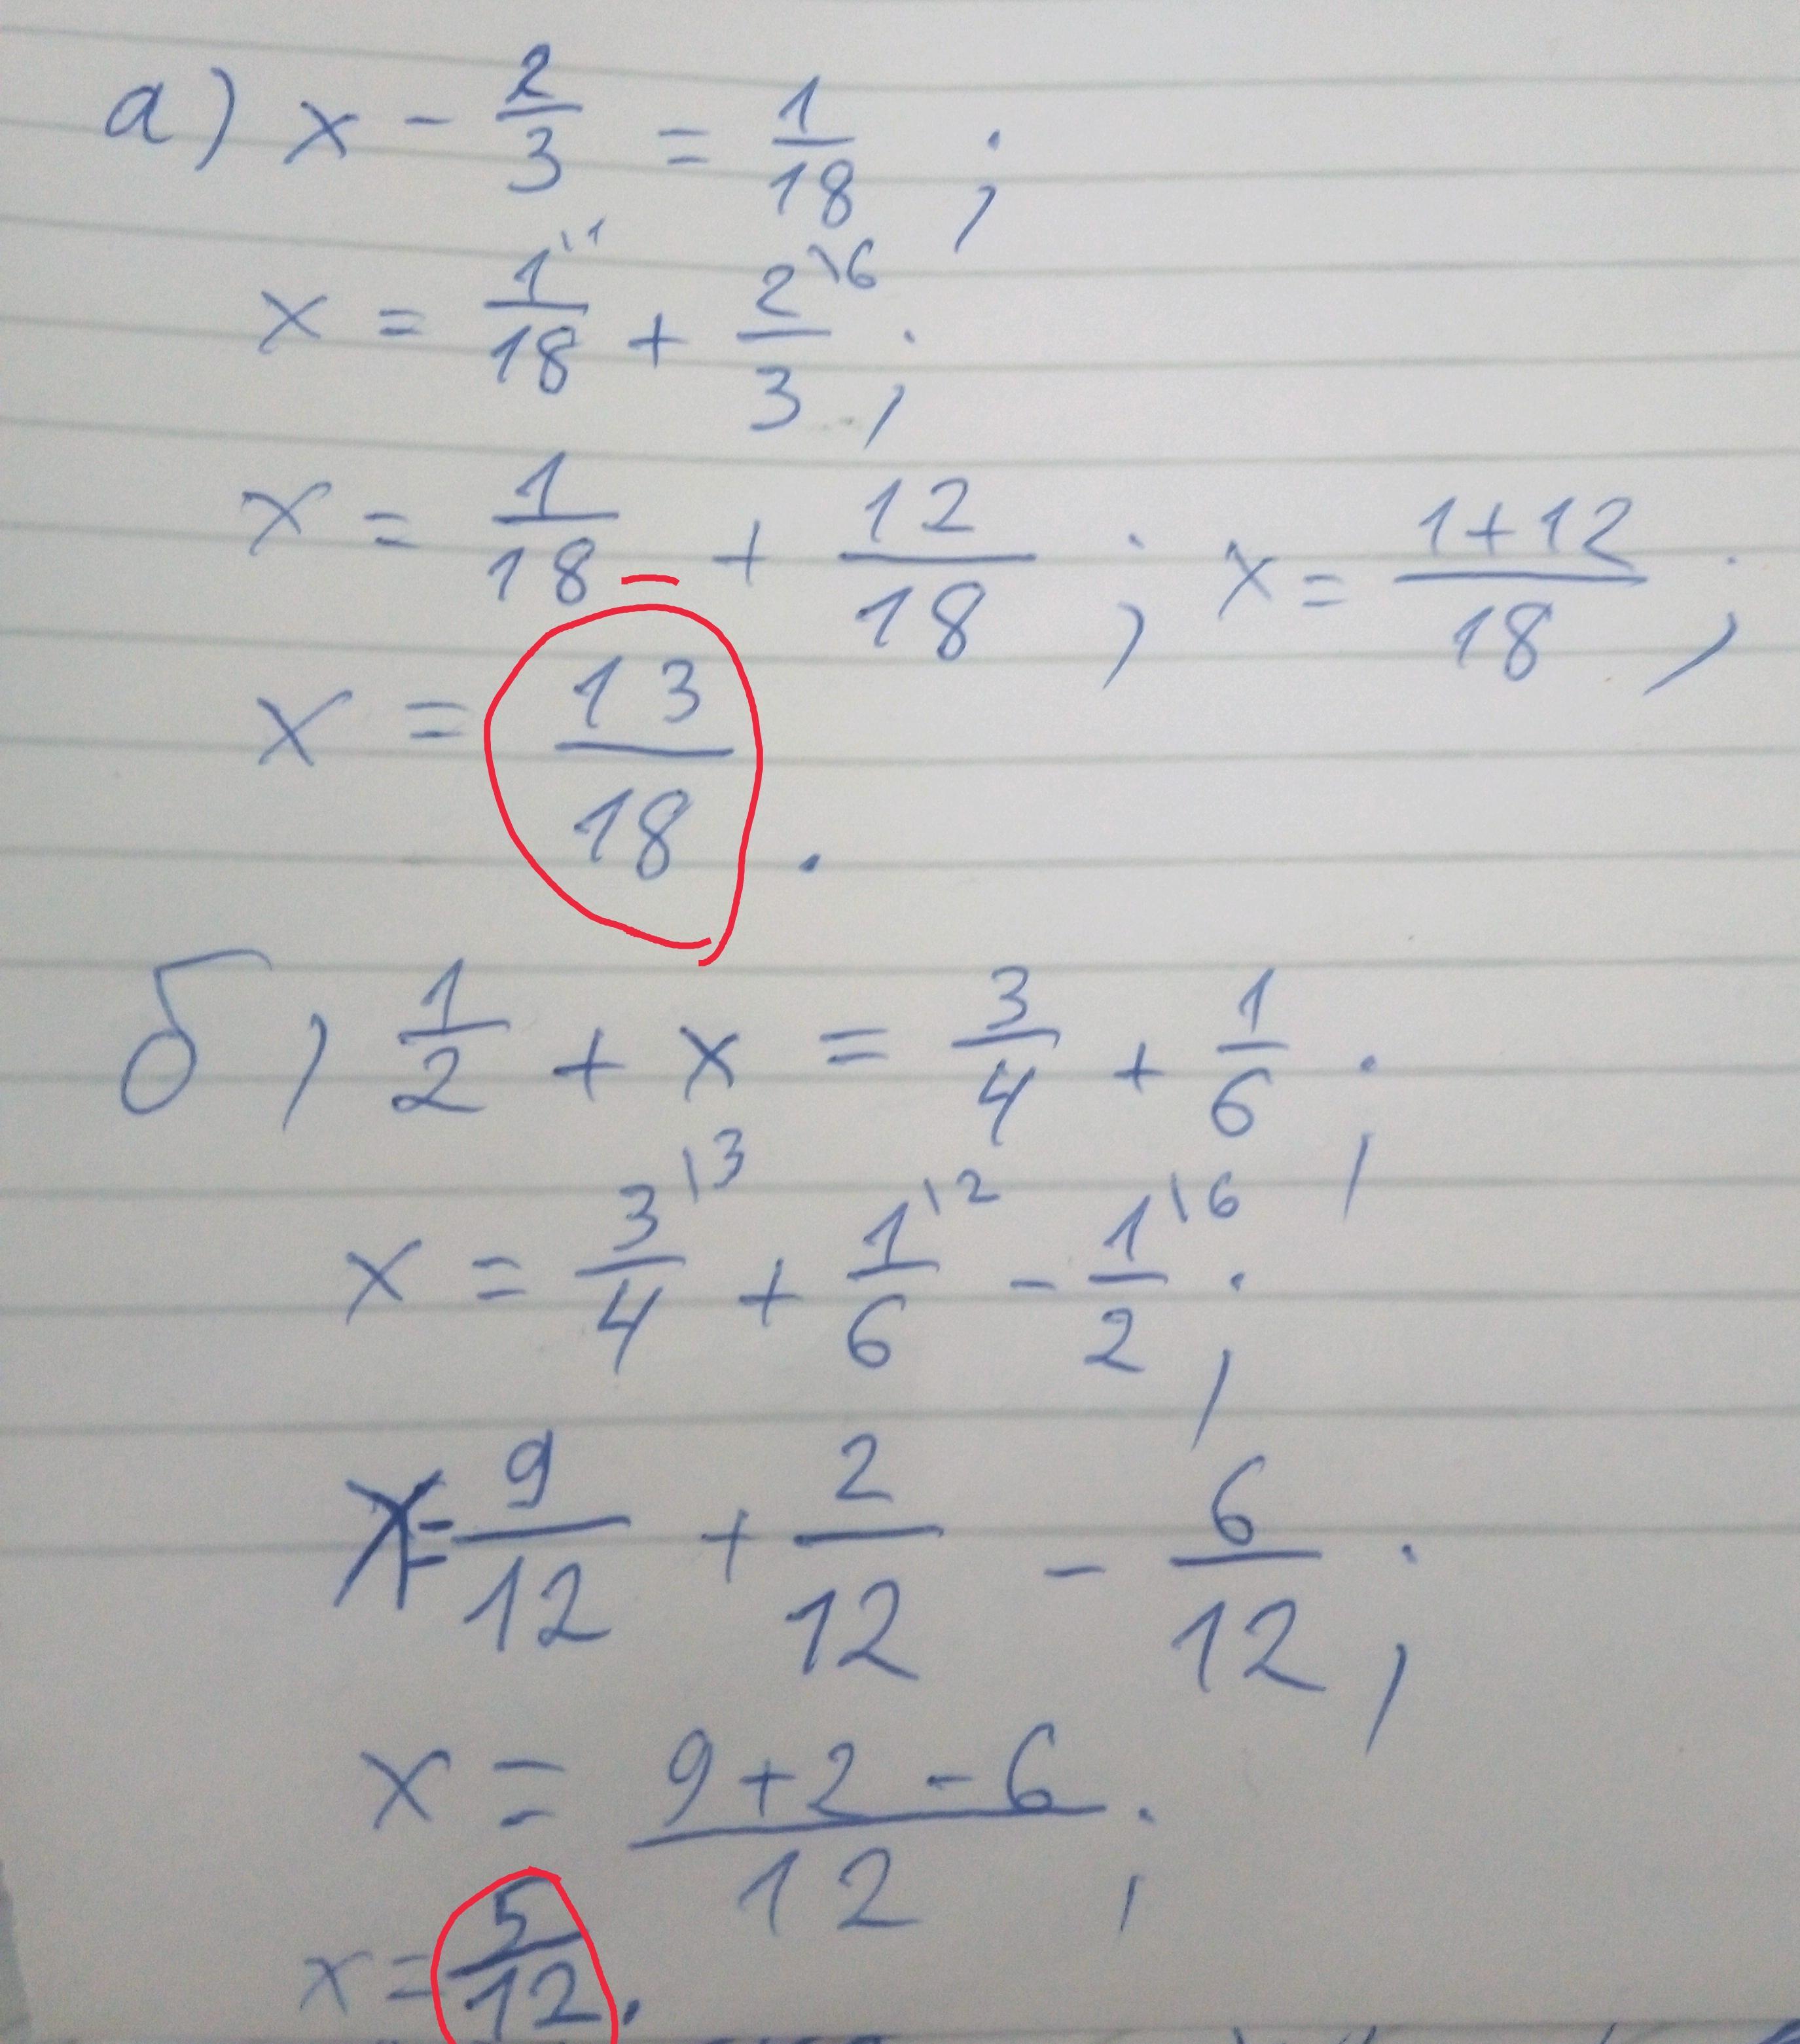 а) x - 2/3 = 1/18 ;
x = 1\1/18 + 2\6/3 ;
x = 1/18 + 12/18 ; x = 1+12/18 ;
x = 13/18 .
б) 1/2 + x = 3/4 + 1/6 ;
x = 3\3/4 + 1\2/6 - 1\6/2 ;
x = 9/12 + 2/12 - 6/12 ;
x = 9+2-6/12 ;
x = 5/12 .